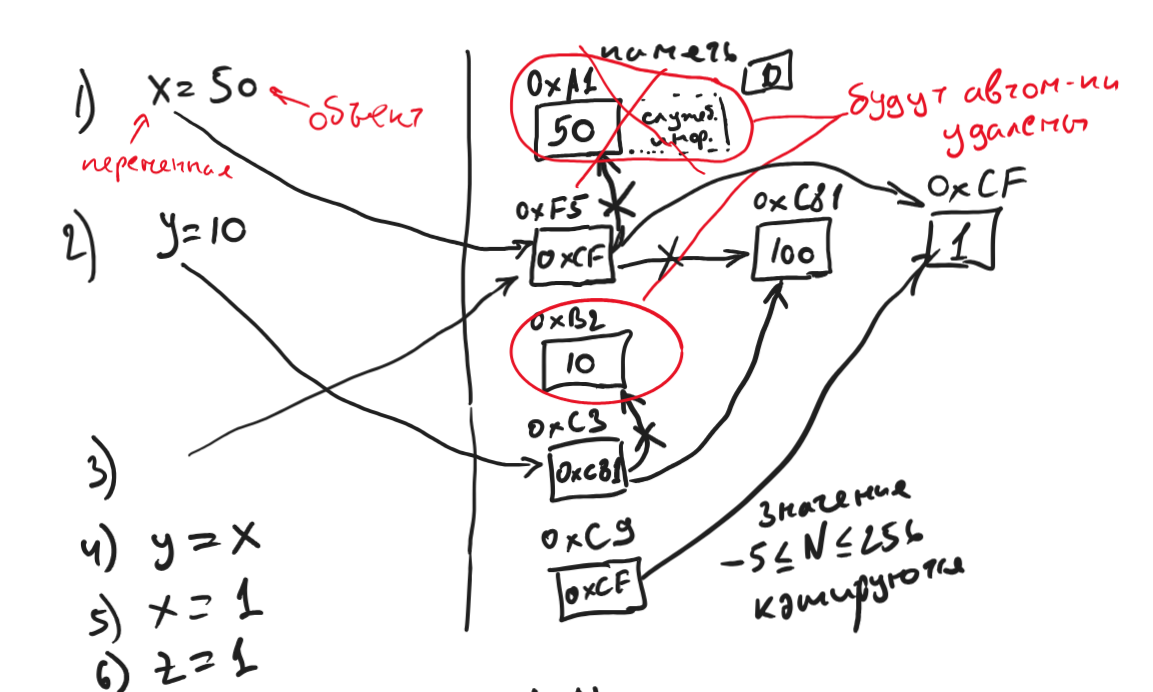 1) x = 50
объект
переменная
2) y = 10
3)
4) y = x
5) x = 1
6) z = 1
паметь
0xA1
50
служеб.
инфор.
D
будут автом-ки
удалены
0xF5
0xCF
0xC81
100
0xCF
1
0xB2
10
0xC3
0xC81
0xC9
0xCF
Значения
-5 ≤ N ≤ 256
кэшируются